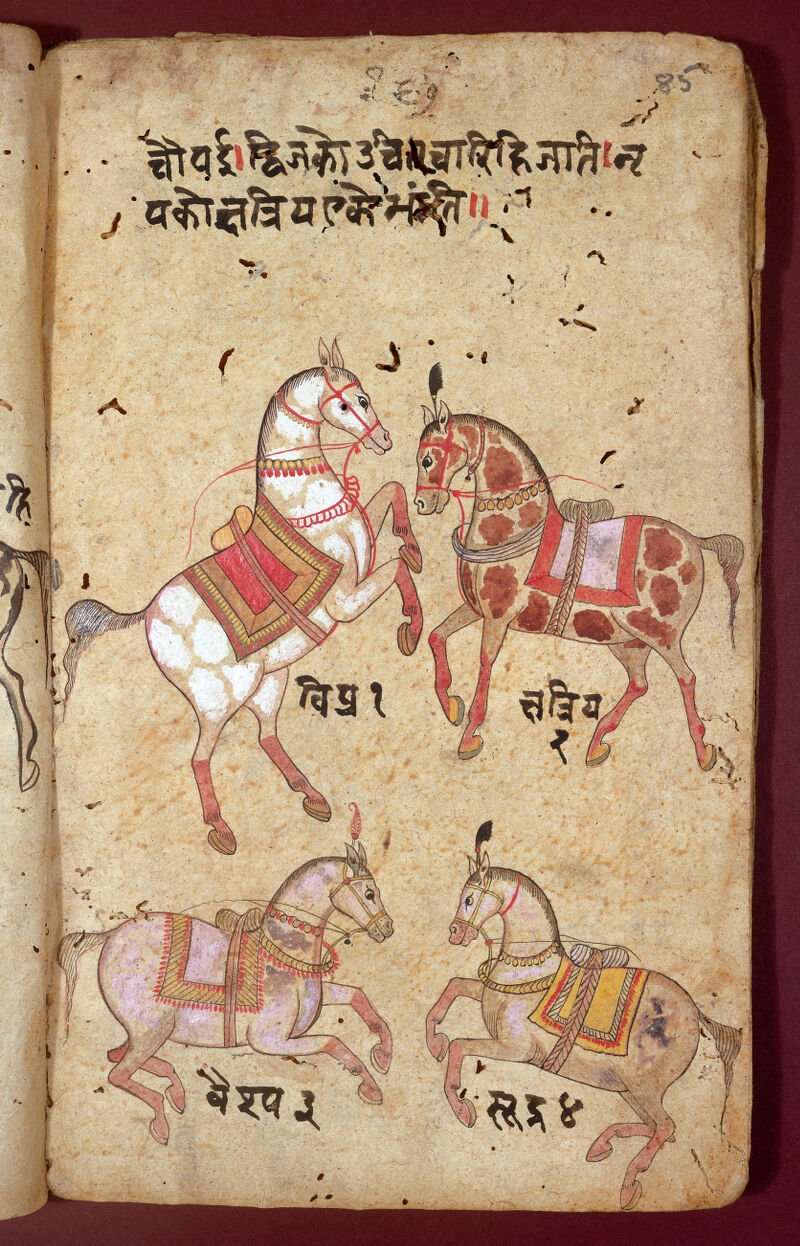 85
चौपई। द्विजको उचित चारिहि जाति। नृ
पको क्षत्रिय एके भांति॥
विप्र १
क्षत्रिय
२
वैश्य ३
सूद्र ४